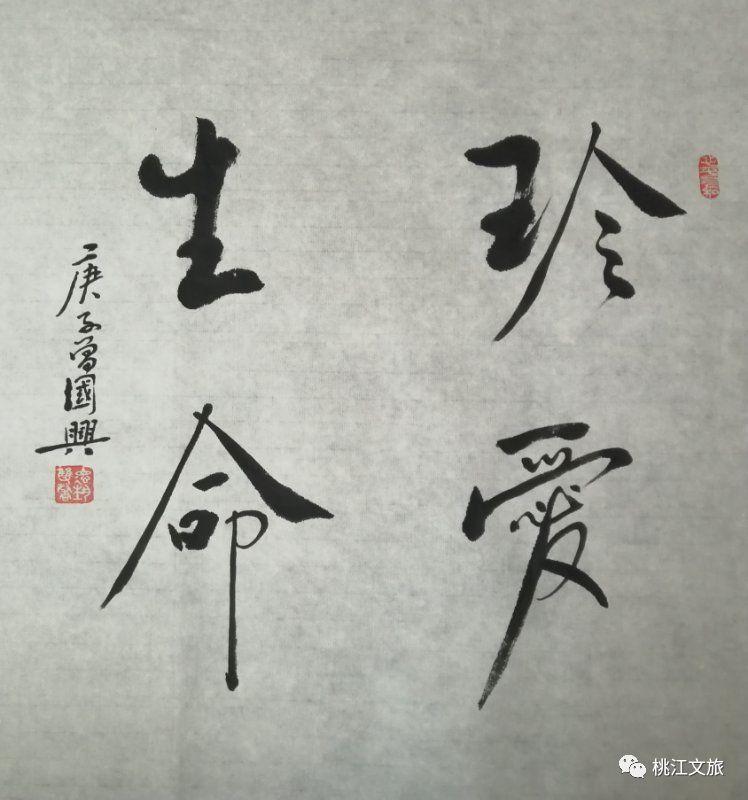 珍愛
生命
庚子曾國興
桃江文旅